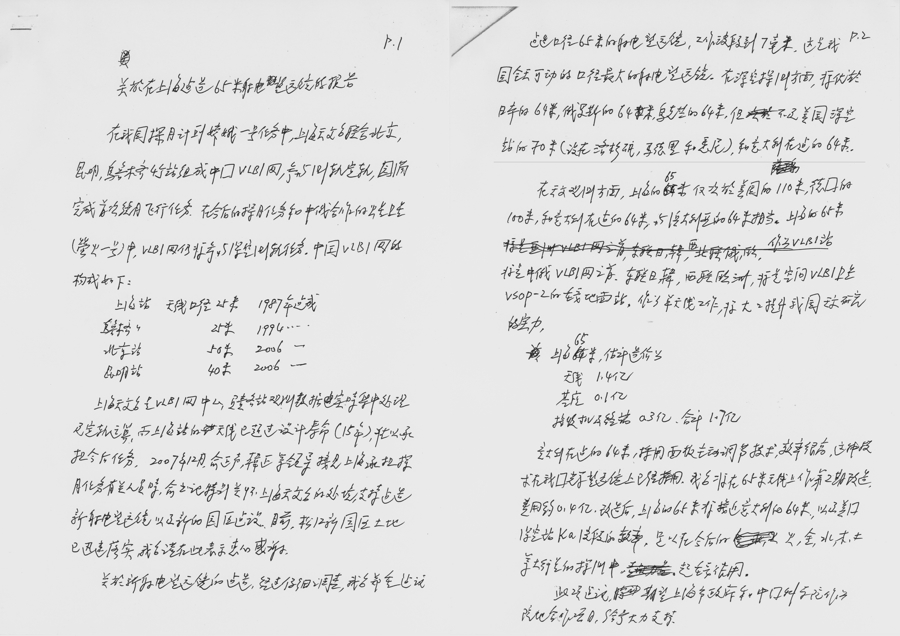 P.1
关于在上海建造65米射电望远镜的报告
在我国探月计划嫦娥一号任务中,上海天文台联合北京,
昆明,乌鲁木齐4个站组成中国VLBI网,参与测轨定轨,圆满
完成首次绕月飞行任务. 在今后的探月任务和中俄合作的火星卫星
(萤火一号)中,VLBI网仍将参与深空测轨任务. 中国VLBI网的
构成如下:
上海站 天线口径25米 1987年建成
乌鲁木齐〃 25米 1994 ····
北京站 50米 2006 一
昆明站 40米 2006 一
上海天文台是VLBI网中心,
及定轨运算, 而上海站的天线已超过设计寿命(15年), 难以承
担今后任务. 2007年12月, 俞正声, 韩正等领导接见上海承担探
月任务有关人员时, 俞书记特别关怀上海天文台的处境,支持建造
新射电望远镜以及新的园区建设. 目前, 松江新园区土地
已迅速落实, 我台谨在此表示衷心感谢.
关于新射电望远镜的建造, 经过仔细调查, 我台希望建议
P.2
建造口径65米的射电望远镜, 工作波段到7毫米. 这是我
国全可动的口径最大的射电望远镜. 在深空探测方面, 将优于
日本的64米, 俄罗斯的64米, 乌克兰的64米, 但不及美国深空
站的70米(设在洛杉矶, 马德里和悉尼), 和意大利在建的64米.
在天文观测方面, 上海的65米仅次于美国的110米, 德国的
100米, 和意大利在建的64米, 与澳大利亚的64米相当. 上海的65米
作为VLBI站
将是中俄VLBI网之首. 东联日韩, 西联欧洲, 将是空间VLBI卫星
VSOP-2的主导地面站. 作为单天线工作, 将大大提升我国天文研究
的实力.
上海65米, 估计造价为
天线 1.4亿
基座 0.1亿
接收机及终端 0.3亿. 合计1.9亿
意大利在建的64米, 采用面板主动调节技术, 效率很高, 这种技
术在我国望远镜上已经使用. 我台将在65米天线上作第二期改造,
费用约0.4亿. 改造后, 上海的65米将接近意大利的64米, 以及美国
深空站Ka波段的效率. 足以在今后的火, 金, 木, 土
等大行星的探测中, 起主导作用.
此项建议, 期望上海市政府和中国科学院作为
院地合作项目, 给予大力支持.